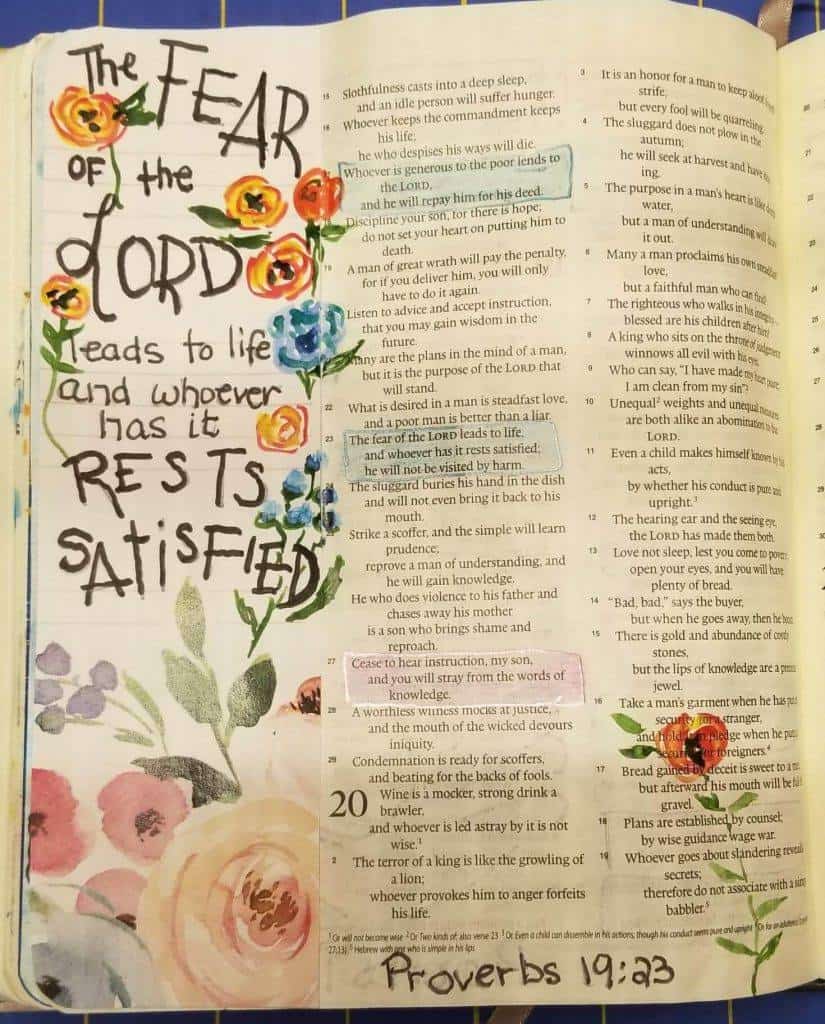 The FEAR
OF the
LORD
leads to life
and whoever
has it
RESTS
SATISFIED
15 Slothfulness casts into a deep sleep,
and an idle person will suffer hunger.
16 Whoever keeps the commandment keeps
his life;
he who despises his ways will die.
Whoever is generous to the poor lends to
the LORD,
and he will repay him for his deed.
Discipline your son, for there is hope;
do not set your heart on putting him to
death.
19 A man of great wrath will pay the penalty,
for if you deliver him, you will only
have to do it again.
Listen to advice and accept instruction,
that you may gain wisdom in the
future.
Many are the plans in the mind of a man,
but it is the purpose of the LORD that
will stand.
22 What is desired in a man is steadfast love,
and a poor man is better than a liar.
23 The fear of the LORD leads to life,
and whoever has it rests satisfied;
he will not be visited by harm.
24 The sluggard buries his hand in the dish
and will not even bring it back to his
mouth.
Strike a scoffer, and the simple will learn
prudence;
reprove a man of understanding, and
he will gain knowledge.
He who does violence to his father and
chases away his mother
is a son who brings shame and
reproach.
27 Cease to hear instruction, my son,
and you will stray from the words of
knowledge.
28 A worthless witness mocks at justice,
and the mouth of the wicked devours
iniquity.
29 Condemnation is ready for scoffers,
and beating for the backs of fools.
20 Wine is a mocker, strong drink a
brawler,
and whoever is led astray by it is not
wise.1
2 The terror of a king is like the growling of
a lion;
whoever provokes him to anger forfeits
his life.
3 It is an honor for a man to keep aloof
strife;
but every fool will be quarreling.
4 The sluggard does not plow in the
autumn;
he will seek at harvest and have
ing.
5 The purpose in a man's heart is like
water,
but a man of understanding will
it out.
6 Many a man proclaims his own
love,
but a faithful man who can find
7 The righteous who walks in his
blessed are his children after him!
8 A king who sits on the throne of judgment
winnows all evil with his eyes.
9 Who can say, "I have made my heart pure;
I am clean from my sin"?
10 Unequal2 weights and unequal measures
are both alike an abomination to the
LORD.
11 Even a child makes himself known by his
acts,
by whether his conduct is pure and
upright.3
12 The hearing ear and the seeing eye,
the LORD has made them both.
13 Love not sleep, lest you come to
open your eyes, and you will have
plenty of bread.
14 "Bad, bad," says the buyer,
but when he goes away, then he
15 There is gold and abundance of costly
stones,
but the lips of knowledge are a
jewel.
16 Take a man's garment when he has
security for a stranger,
and hold pledge when he puts
foreigners.4
17 Bread gained by deceit is sweet to a
but afterward his mouth will be full
gravel.
18 Plans are established by counsel;
by wise guidance wage war.
19 Whoever goes about slandering reveals
secrets;
therefore do not associate with a
babbler.5
1 Or will not become wise 2 Or Two kinds of; also verse 23 3 Or Even a child can dissemble in his actions, though his conduct seems pure and upright
27:13) 5 Hebrew with one who is simple in his lips
Proverbs 19:23